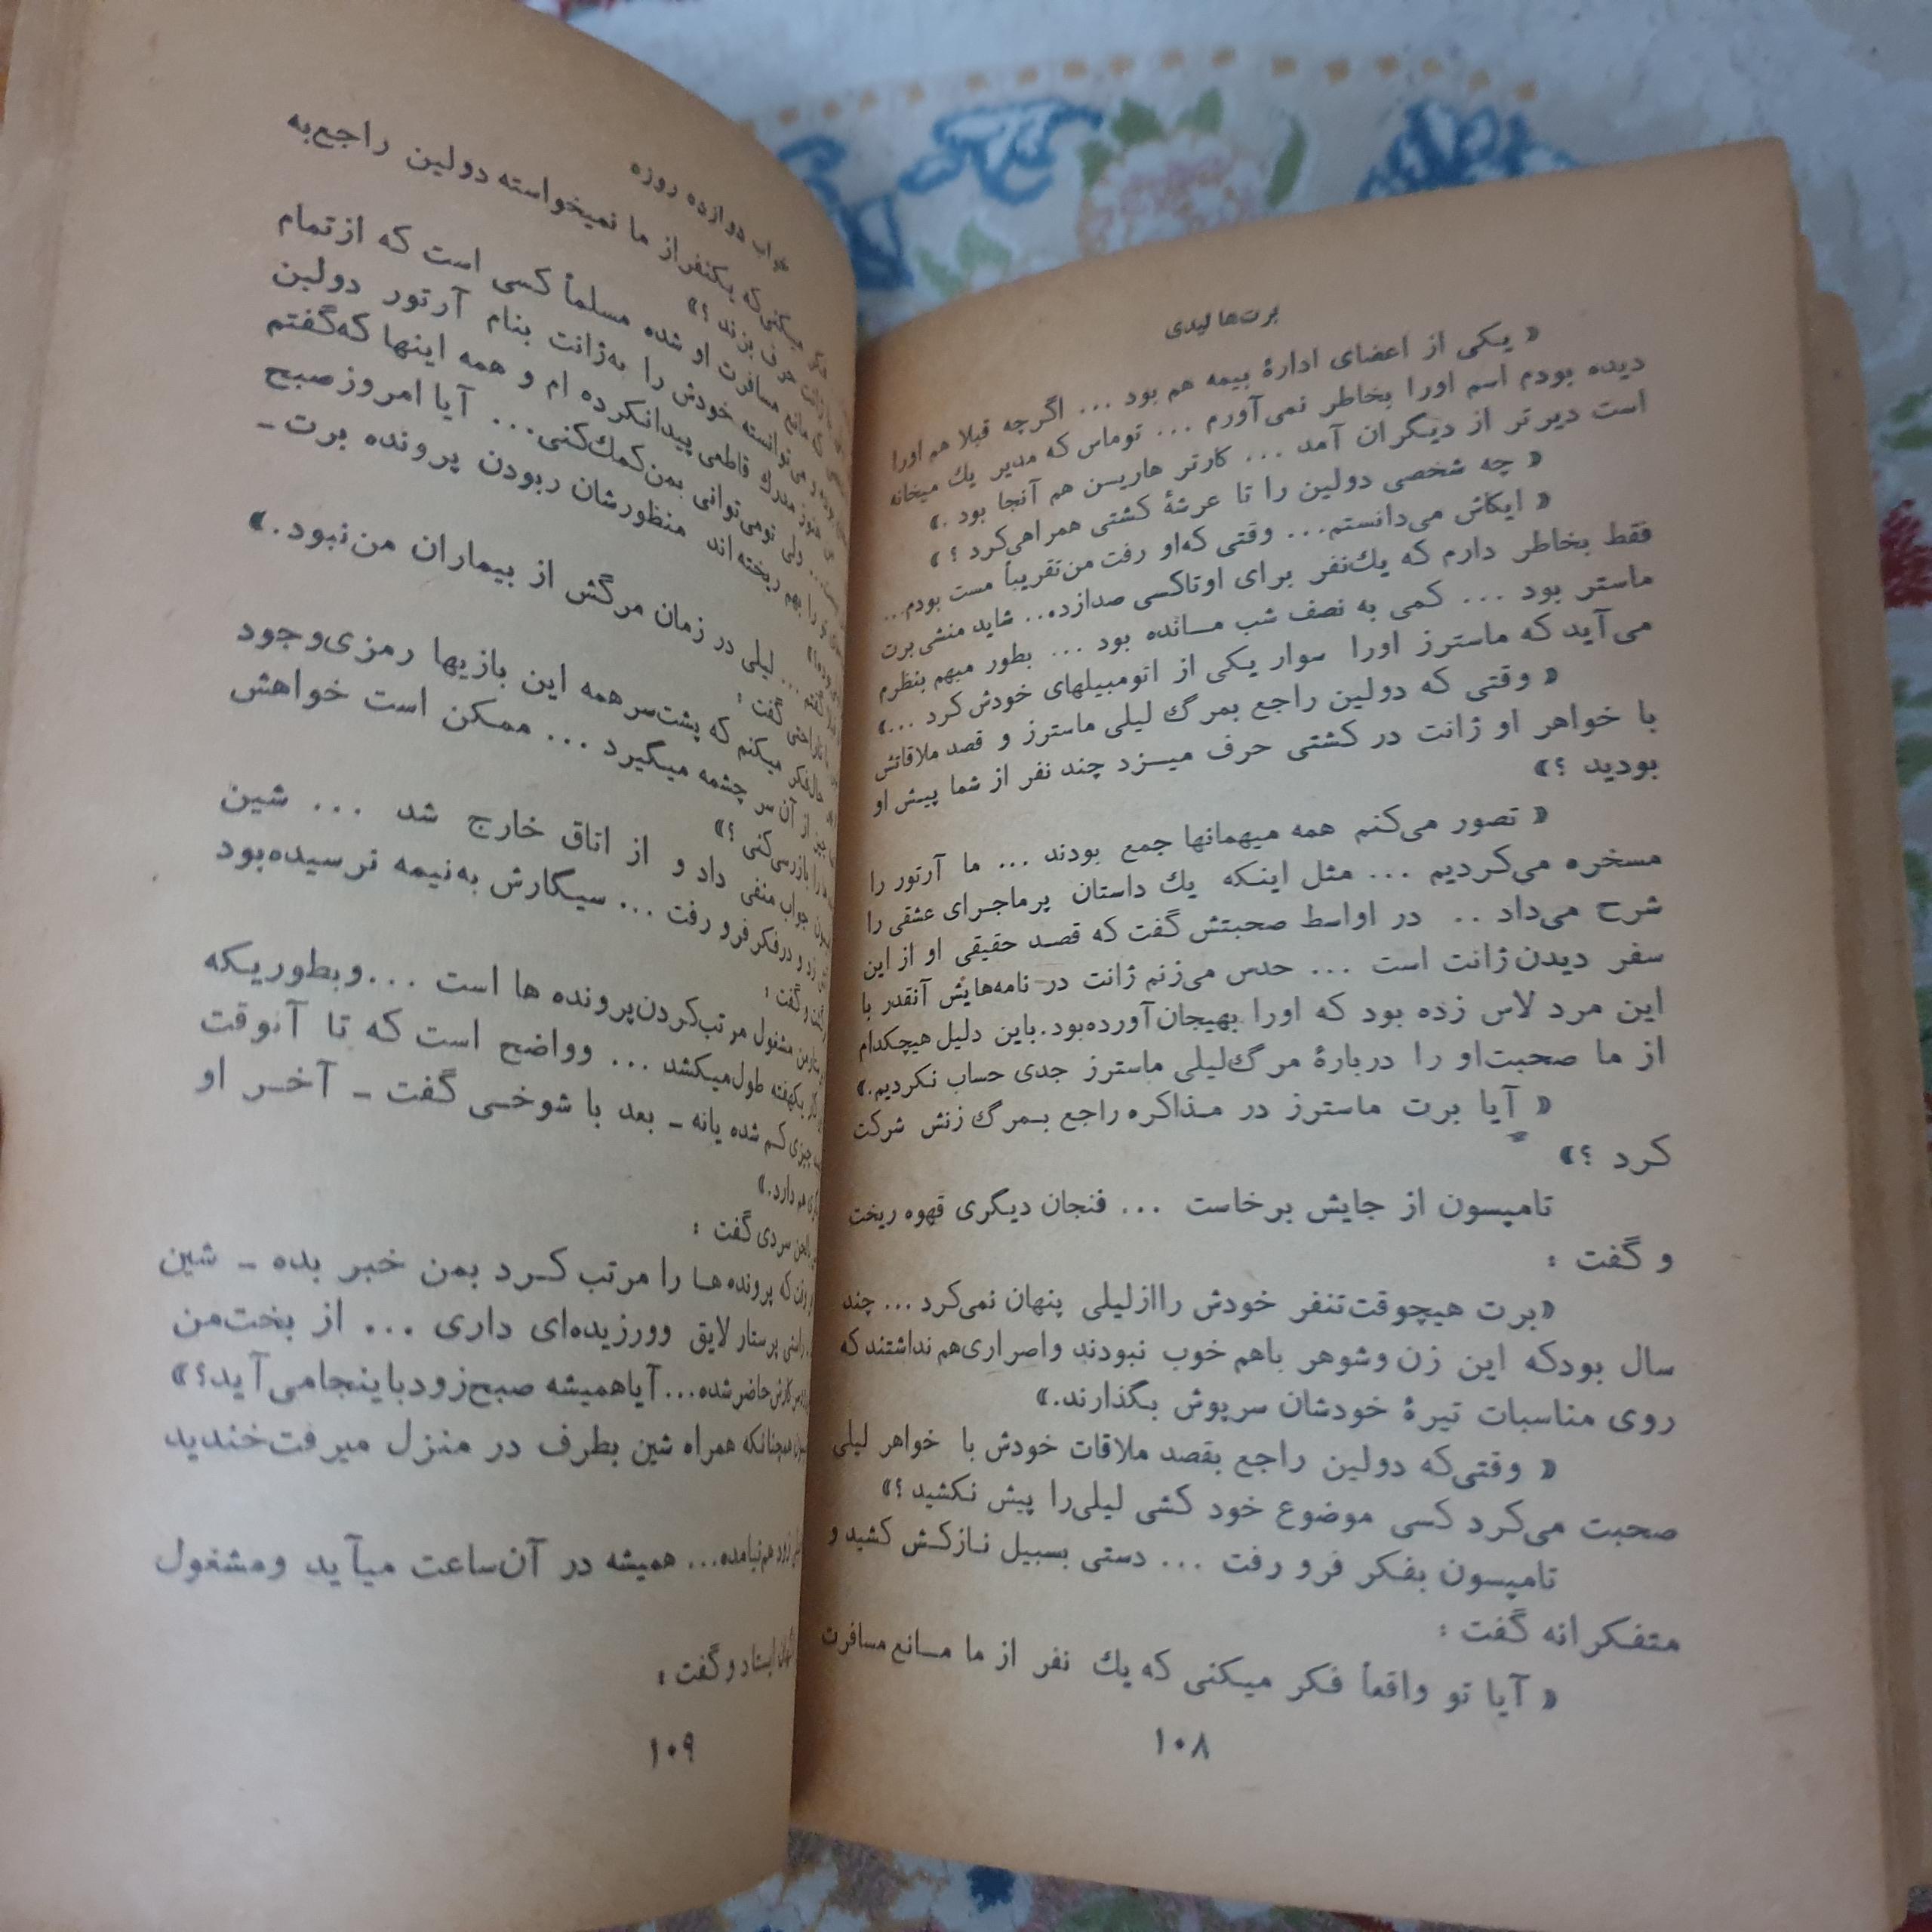 برت‌ها لیدی
« یکی از اعضای ادارهٔ بیمه هم بود ... اگرچه قبلا هم اورا
دیده بودم اسم اورا بخاطر نمی‌آورم ... توماس که مدیر یك میخانه
است دیرتر از دیگران آمد ... کارتر هاریسن هم آنجا بود .»
« چه شخصی دولین را تا عرشهٔ کشتی همراهی‌کرد ؟ »
« ایکاش می‌دانستم... وقتی که‌او رفت من‌تقریباً مست بودم...
فقط بخاطر دارم که یك‌نفر برای اوتاکسی صدازده... شاید منشی برت
ماستر بود ... کمی به نصف شب مانده بود ... بطور مبهم بنظرم
می‌آید که ماسترز اورا سوار یکی از اتومبیلهای خودش کرد ...»
« وقتی که دولین راجع بمرگ لیلی ماسترز و قصد ملاقاتش
با خواهر او ژانت در کشتی حرف میزد چند نفر از شما پیش او
بودید ؟»
« تصور می‌کنم همه میهمانها جمع بودند ... ما آرتور را
مسخره می‌کردیم ... مثل اینکه یك داستان پرماجرای عشقی را
شرح می‌داد .. در اواسط صحبتش گفت که قصد حقیقی او از این
سفر دیدن ژانت است ... حدس می‌زنم ژانت در نامه‌هایش آنقدر با
این مرد لاس زده بود که اورا بهیجان‌آورده‌بود.باین دلیل هیچکدام
از ما صحبت‌او را دربارهٔ مرگ‌لیلی ماسترز جدی حساب نکردیم.»
« آیا برت ماسترز در مذاکره راجع بمرگ زنش شرکت
کرد ؟»
تامپسون از جایش برخاست ... فنجان دیگری قهوه ریخت
و گفت :
«برت هیچوقت‌تنفر خودش راازلیلی پنهان نمی‌کرد ... چند
سال بودکه این زن وشوهر باهم خوب نبودند واصراری‌هم نداشتند که
روی مناسبات تیرهٔ خودشان سرپوش بگذارند.»
« وقتی‌که دولین راجع بقصد ملاقات خودش با خواهر لیلی
صحبت می‌کرد کسی موضوع خود کشی لیلی‌را پیش نکشید ؟»
تامپسون بفکر فرو رفت ... دستی بسبیل نازکش کشید و
متفکرانه گفت :
« آیا تو واقعاً فکر میکنی که یك نفر از ما مانع مسافرت
۱۰۸
خواب دوازده روزه
میکنی‌که یکنفراز ما نمیخواسته دولین راجع‌به
حرف بزند ؟»
مانع مسافرت او شده مسلماً کسی است که ازتمام
می‌توانسته خودش را به‌ژانت بنام آرتور دولین
هنوز مدرك قاطعی پیدانکرده ام و همه اینها که‌گفتم
... ولی تومی‌توانی بمن‌کمك‌کنی... آیا امروزصبح
را بهم ریخته اند منظورشان ربودن پرونده برت ـ
... لیلی در زمان مرگش از بیماران من‌نبود.»
گفت :
میکنم که پشت‌سرهمه این بازیها رمزی‌وجود
از آن سر چشمه میگیرد ... ممکن است خواهش
را بازرسی‌کنی ؟»
جواب منفی داد و از اتاق خارج شد ... شین
و درفکرفرو رفت ... سیگارش به‌نیمه نرسیده‌بود
و گفت :
مشغول مرتب‌کردن‌پرونده ها است ...وبطوریکه
یکهفته طول‌میکشد ... وواضح است که تا آنوقت
چیزی کم شده یانه ـ بعد با شوخی گفت ـ آخر او
هم دارد.»
سردی گفت :
که پرونده ها را مرتب کرد بمن خبر بده ـ شین
پرستار لایق وورزیده‌ای داری ... از بخت‌من
حاضر شده... آیاهمیشه صبح‌زودباینجامی‌آید؟»
همچنانکه همراه شین بطرف در منزل میرفت‌خندید
زود هم‌نیامده... همیشه در آن‌ساعت میآید ومشغول
ایستاد و گفت :
۱۰۹